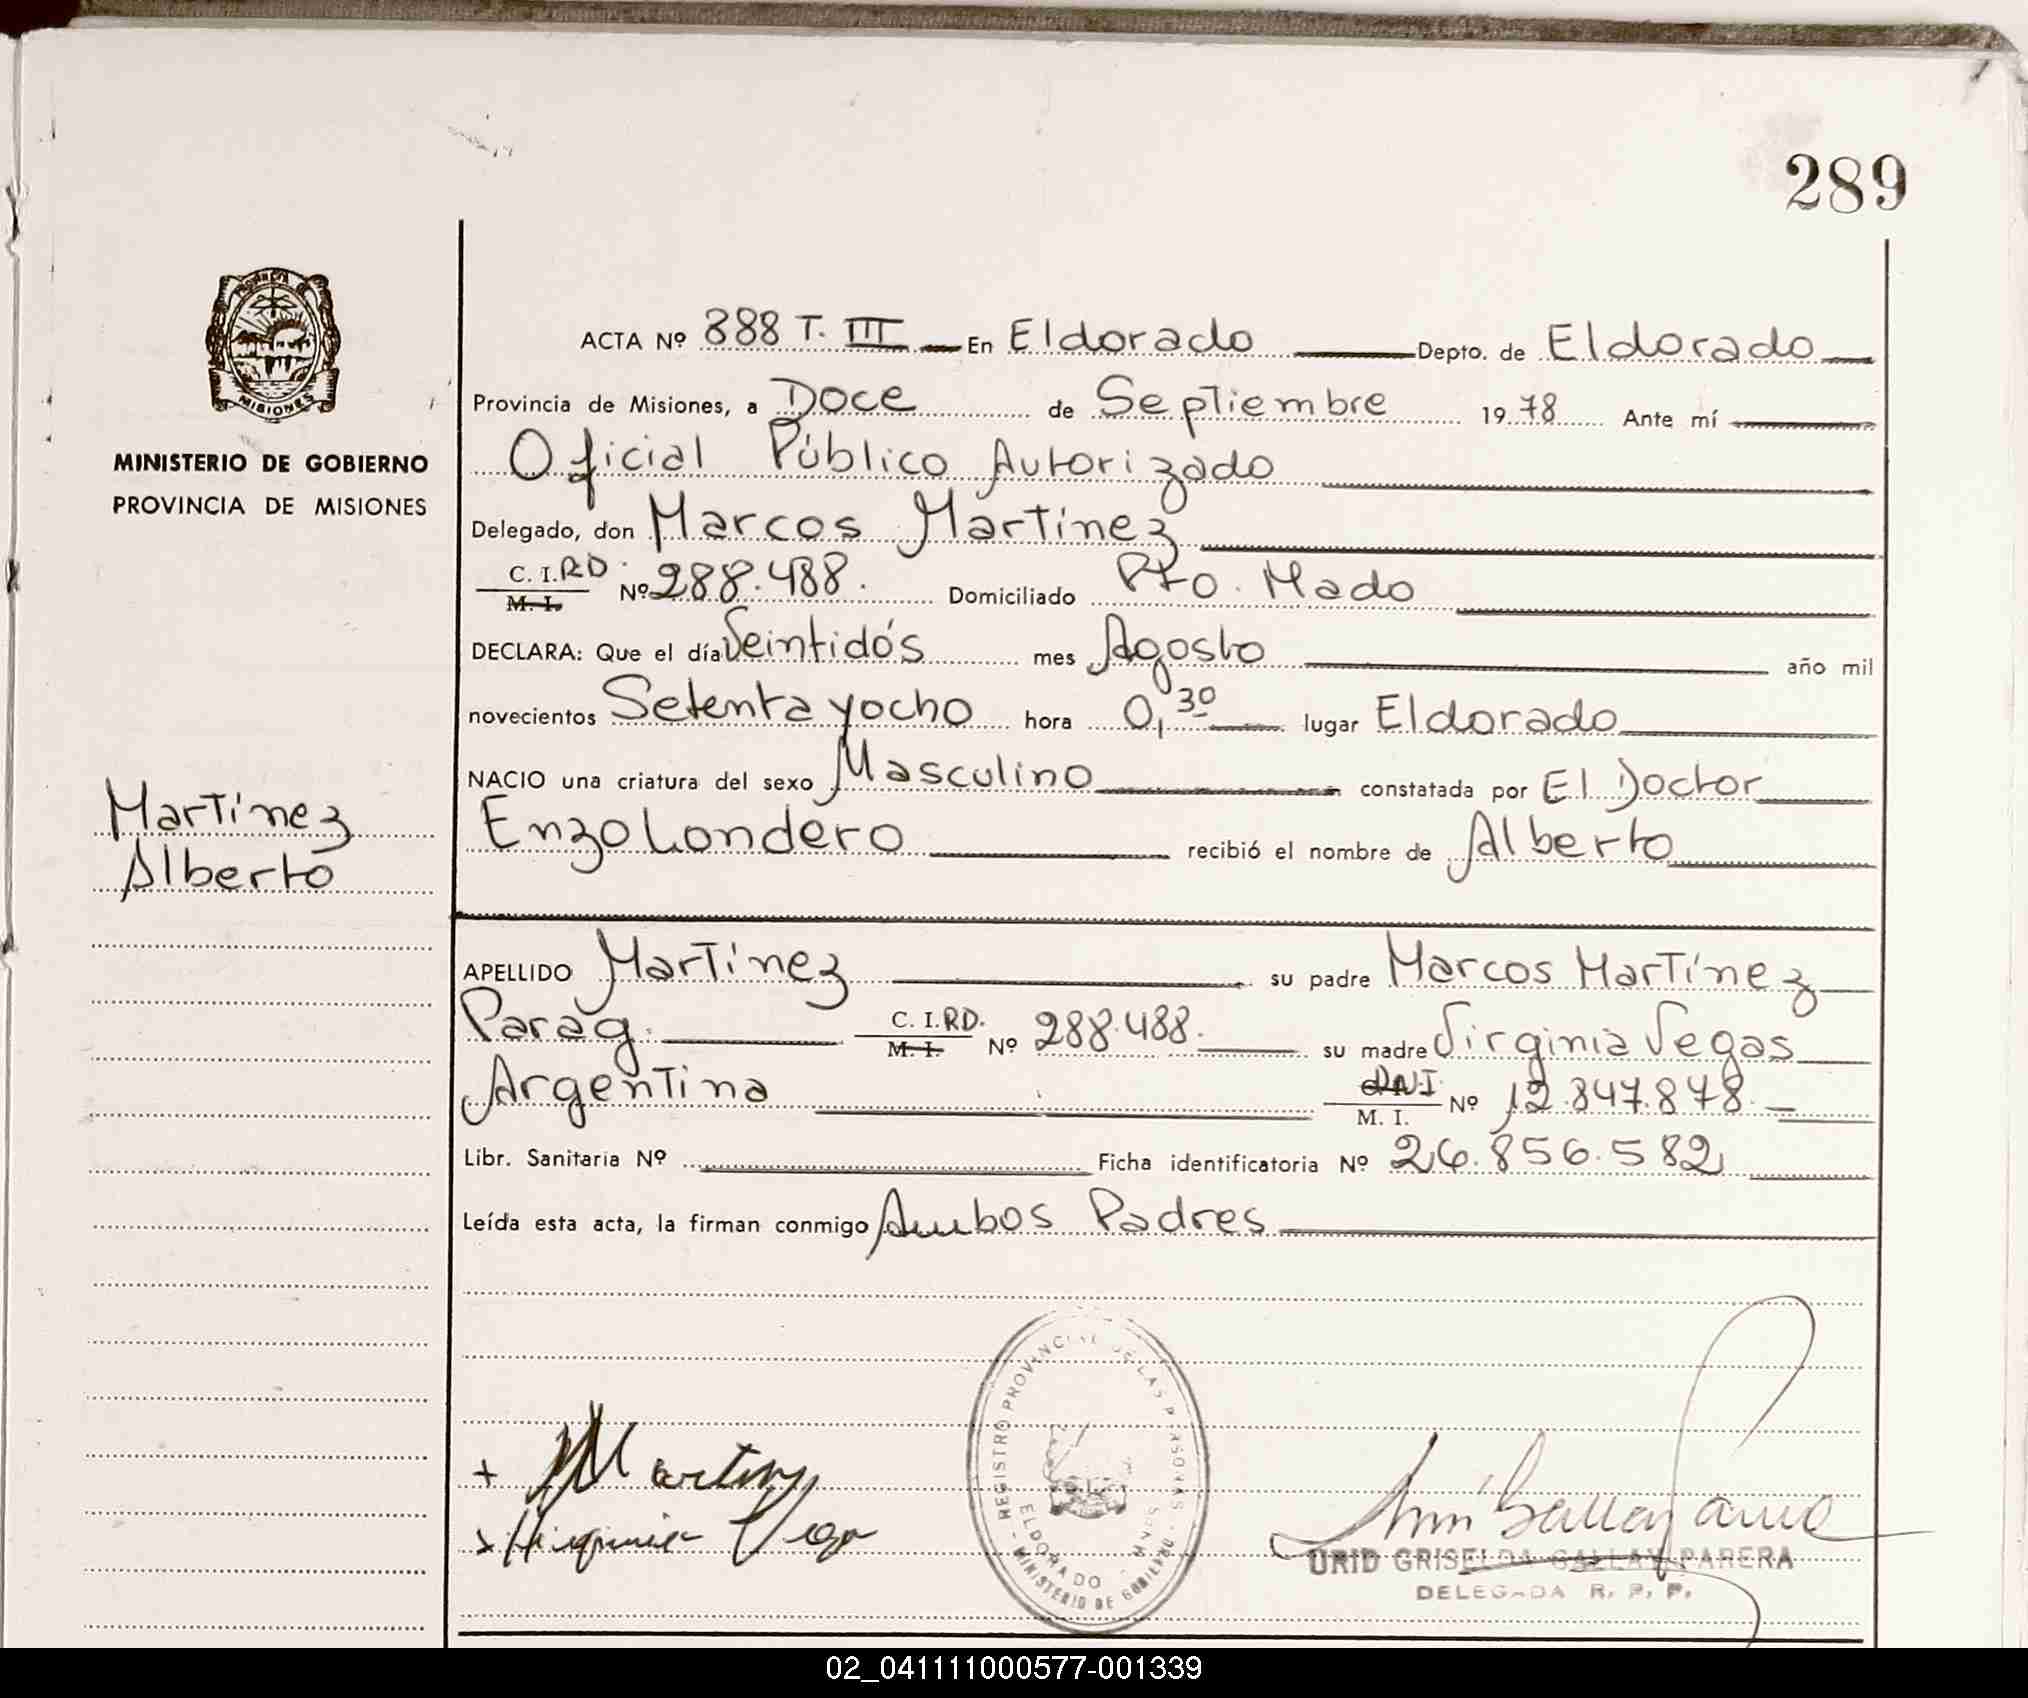 289
PROVINCIA DE
MISIONES
MINISTERIO DE GOBIERNO
PROVINCIA DE MISIONES
Martínez
Alberto
ACTA Nº 888 T. III En Eldorado Depto. de Eldorado
Provincia de Misiones, a Doce de Septiembre 19 78 Ante mí
Oficial Público Autorizado
Delegado, don Marcos Martínez
C. I. RD. M. I. Nº 288.488. Domiciliado Pto. Mado
DECLARA: Que el día Veintidós mes Agosto año mil
novecientos Setenta y ocho hora 0,30 lugar Eldorado
NACIO una criatura del sexo Masculino constatada por El Doctor
Enzo Londero recibió el nombre de Alberto
APELLIDO Martínez su padre Marcos Martínez
Parag. C. I. RD. M. I. Nº 288.488. su madre Virginia Vegas
Argentina DNI M. I. Nº 12.847.878
Libr. Sanitaria Nº Ficha identificatoria Nº 26.856.582
Leída esta acta, la firman conmigo Ambos Padres
REGISTRO PROVINCIAL DE LAS PERSONAS
ELDORADO
MINISTERIO DE GOBIERNO
URID GRISELDA GALLAY PARERA
DELEGADA R. P. P.
02_041111000577-001339